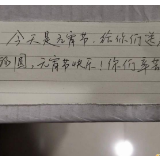 今天是元宵节，给你们送
汤圆，元宵节快乐！你们辛苦